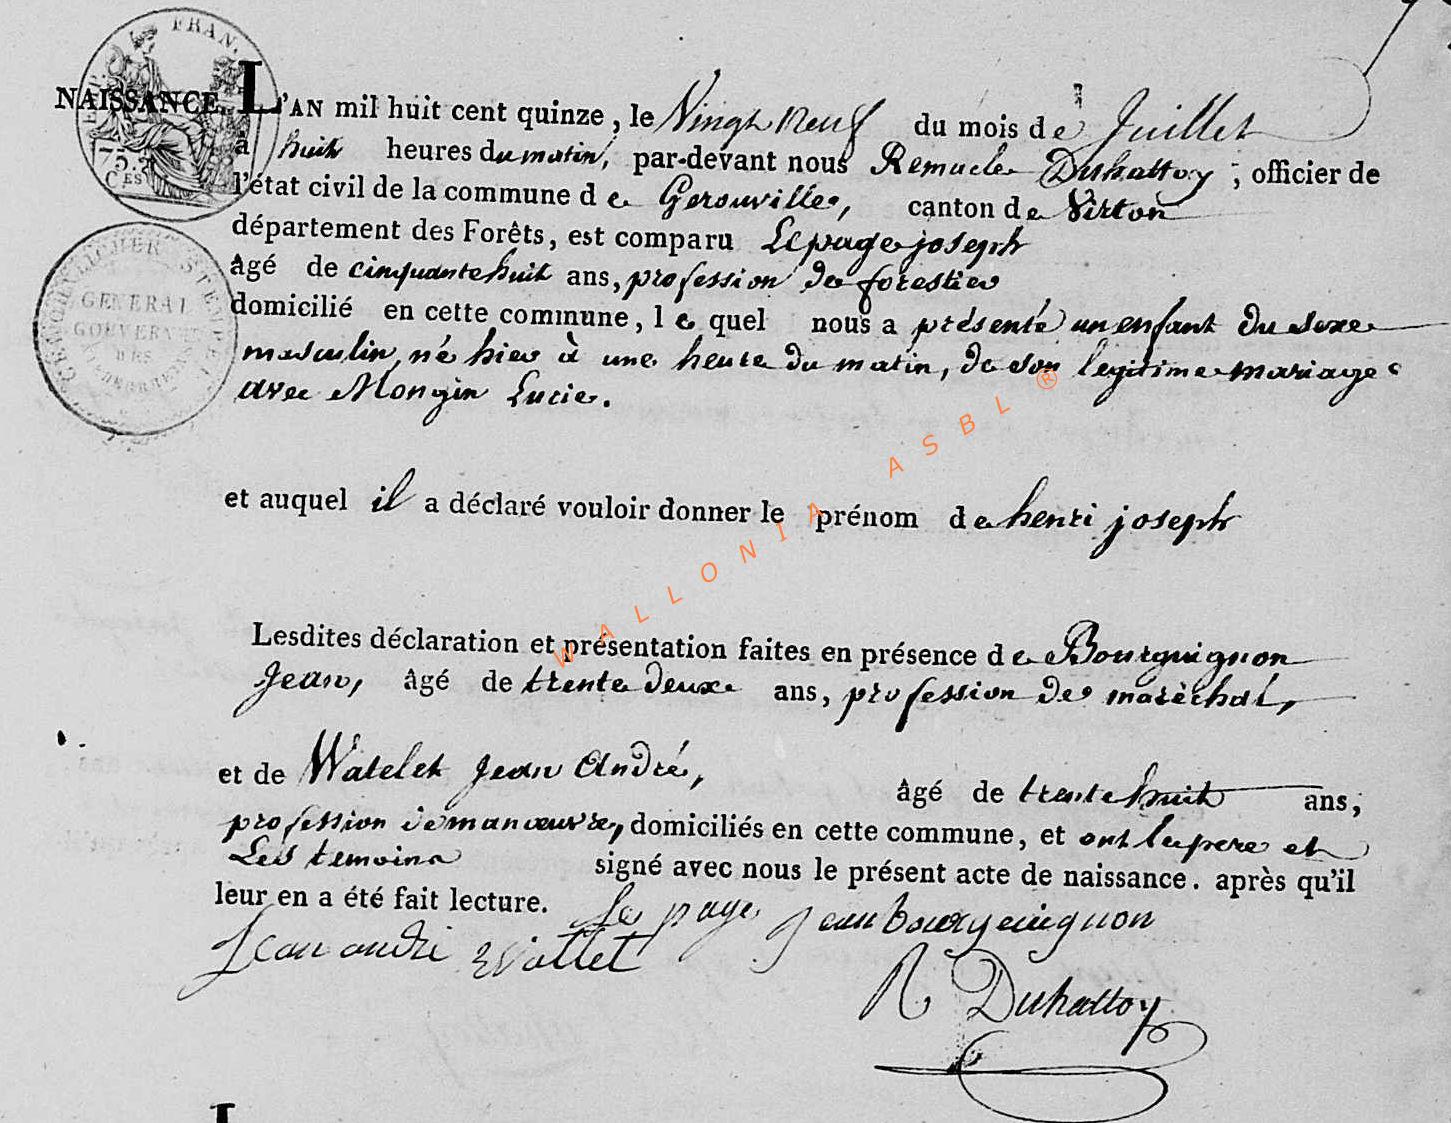 FRAN.
75.
CES
GENERAL
GOUVERN
NAISSANCE. L'AN mil huit cent quinze, le Vingt neuf du mois de Juillet
à huit heures du matin, par-devant nous Remacle Duhattoy, officier de
l'état civil de la commune de Gerouville, canton de Virton
département des Forêts, est comparu Lepage joseph
âgé de cinquante huit ans, profession de forestier
domicilié en cette commune, lequel nous a présenté un enfant du sexe
masculin, né hier à une heure du matin, de son legitime mariage
avec Mongin Lucie.
et auquel il a déclaré vouloir donner le prénom de henri joseph
Lesdites déclaration et présentation faites en présence de Bourguignon
Jean, âgé de trente deux ans, profession de maréchal,
et de Watelet Jean André, âgé de trente huit ans,
profession de manœuvre, domiciliés en cette commune, et ont le pere et
Les temoins signé avec nous le présent acte de naissance. après qu'il
leur en a été fait lecture. Le page jean bourguignon
Jean andré Wattlet
R Duhattoy
WALLONIA ASBL ®